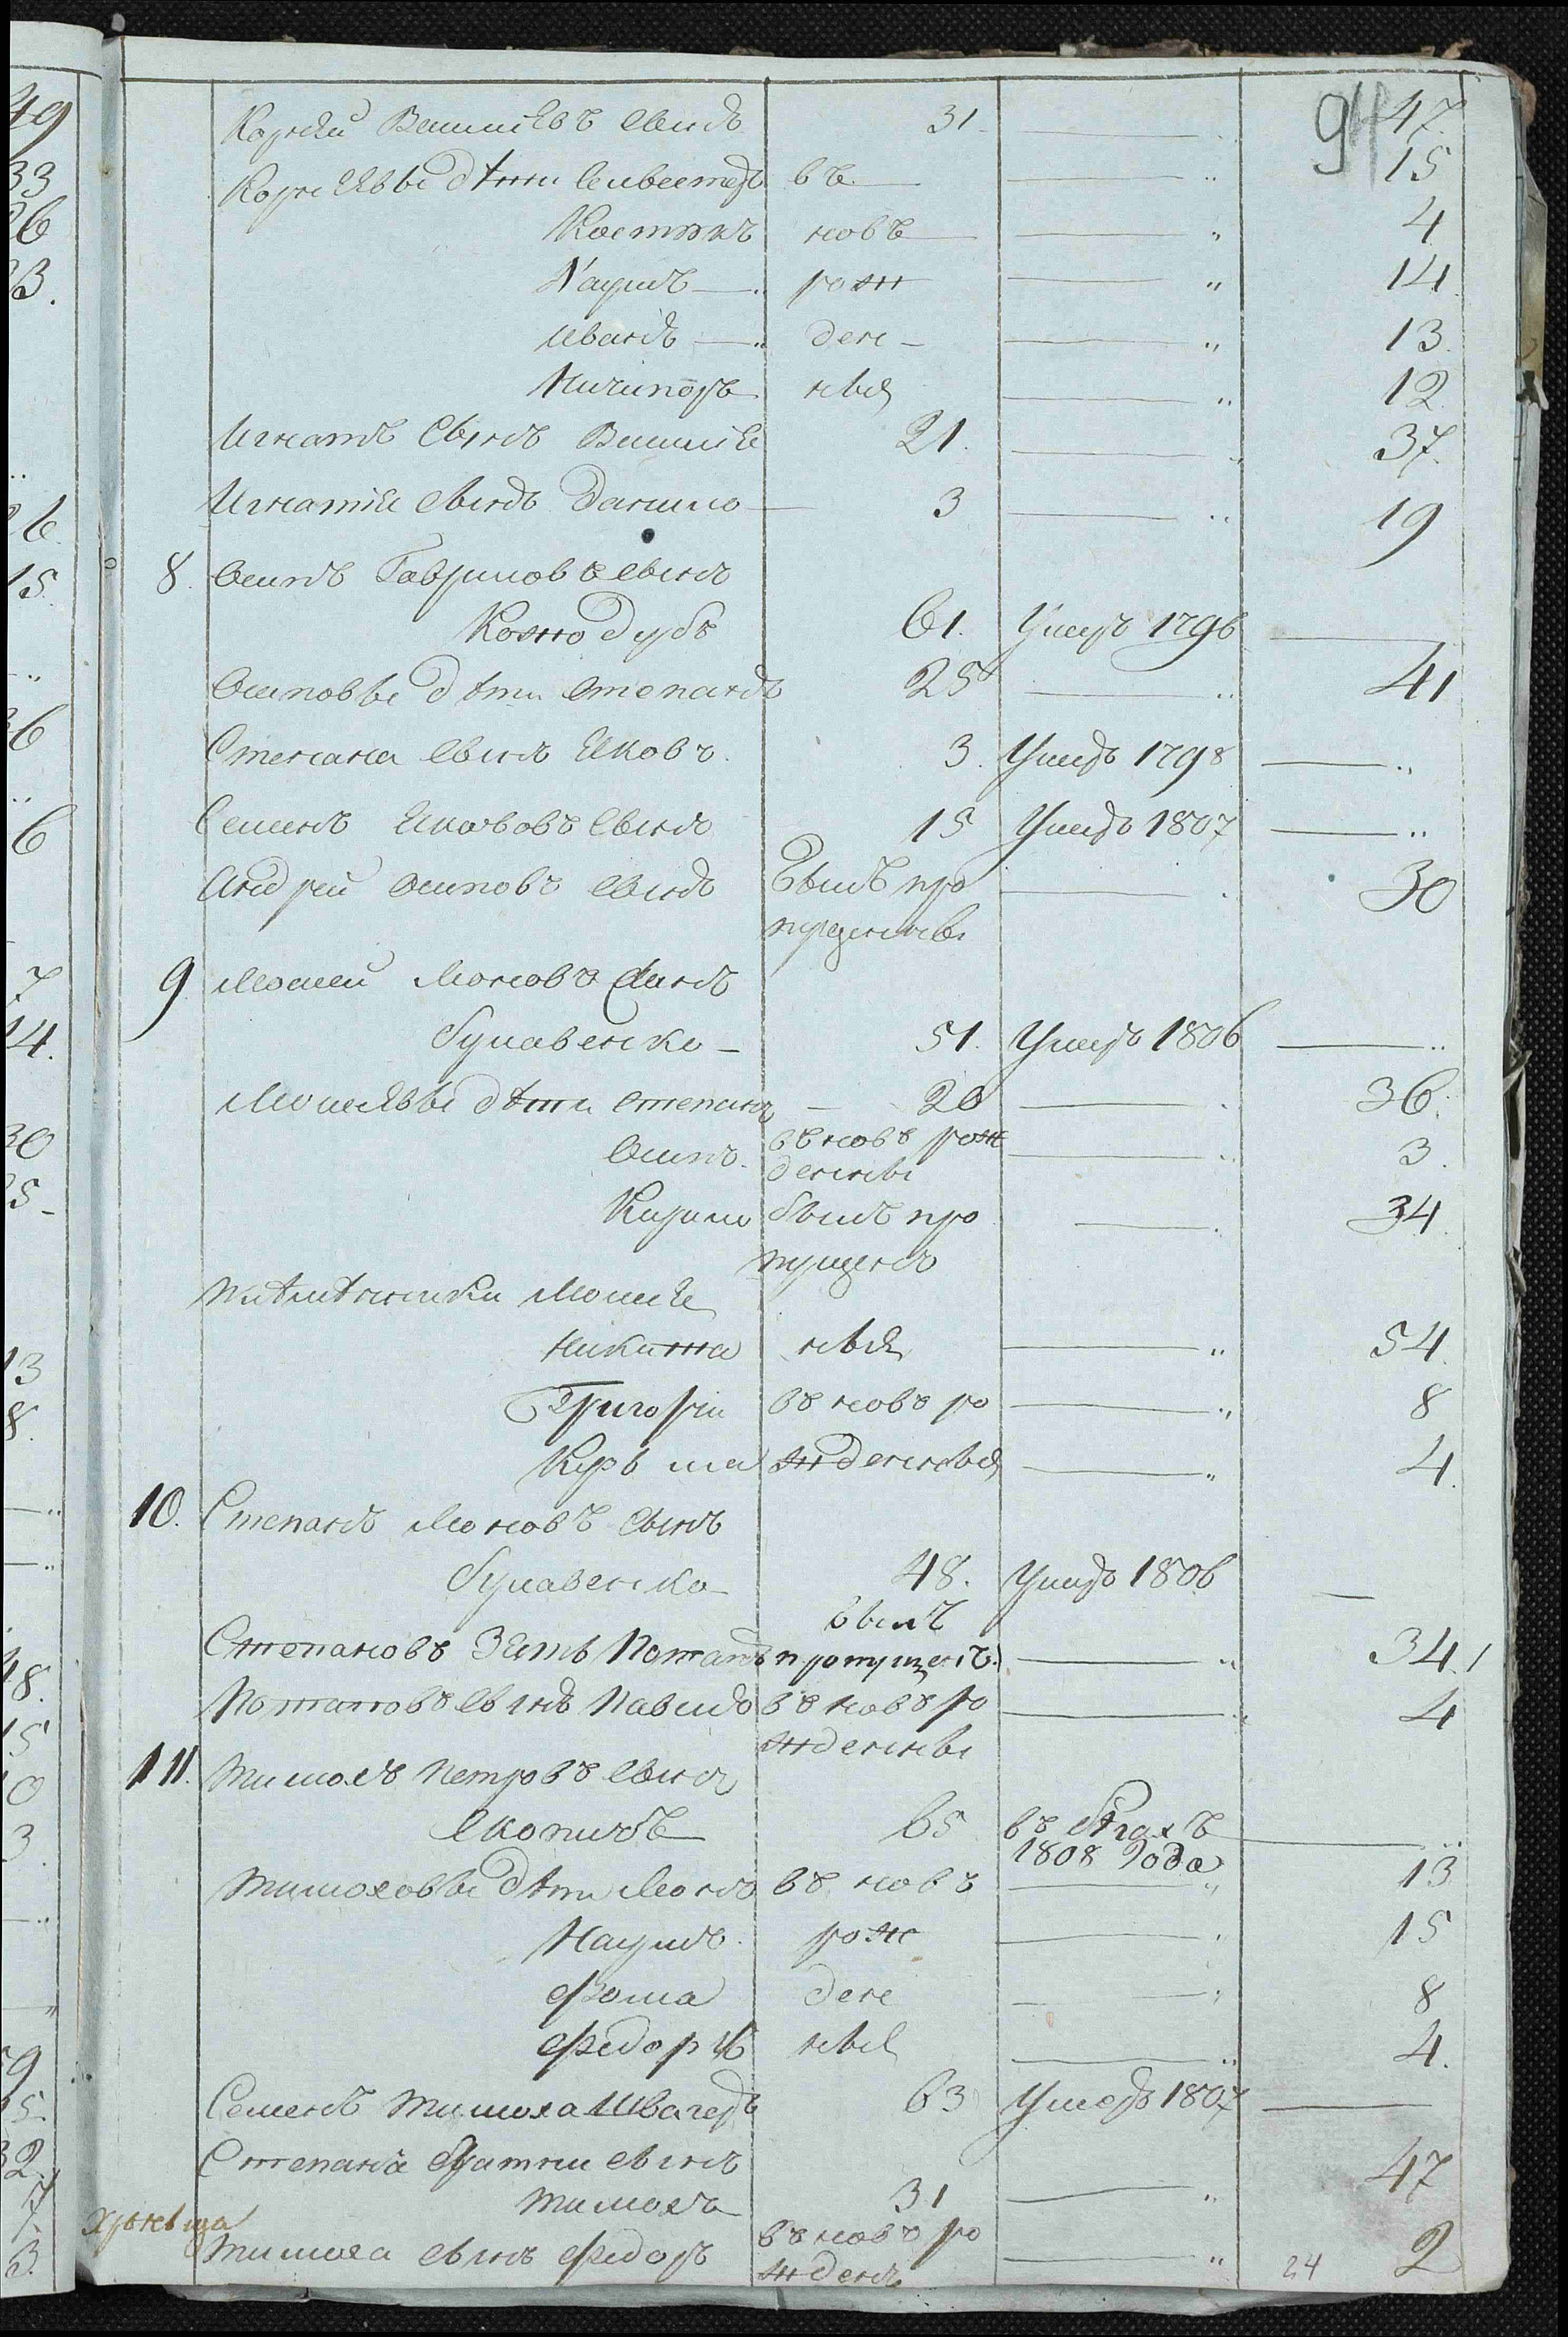 94
Корнѣй Вешнѣвъ сынъ 31. 47.
Корнѣевы дѣти Селвестръ въ 15
Костюкъ новѣ 4
Наумъ рож 14
Иванъ ден 13
Ничипоръ ныя 12
Игнатъ сынъ 21. 37.
Игнатіе сынъ Данило 3 19
8. Осипъ Гавриловъ сынъ
Кожодубъ 61. Умеръ 1796
Осиповы дѣти Степанъ 25 41
Степана сынъ Яковъ 3. Умеръ 1798
Семенъ Якововъ сынъ 15 Умеръ 1807
Андрей Осиповъ сынъ былъ про 30
пущенны
9 Мосей Моновъ сынъ
Булавенко 51. Умеръ 1806
Мосеевы дѣти Степанъ 20 36.
Осипъ въ новѣ рож 3.
денны
Кирило былъ про 34
пущенъ
племѣнники Мосее
Никита ныя 54
Григорій въ новѣ ро 8
Курьма жденныя 4.
10. Степанъ Моновъ сынъ
Булавенко 48. Умеръ 1806
былъ
Степановъ Зять Потапъ пропущенъ. 34.
Потаповъ сынъ Павилъ въ новѣ ро 4
жденны
11. Тимохъ Петровъ сынъ
Скопичъ 65 въ бѣгахъ
1808 года
Тимоховы дѣти въ новѣ 13
Наумъ рож 15
Фома ден 8
Федоръ ныя 4.
Семенъ Тимоха Швагеръ 63 Умеръ 1807
Степана братни сынъ 47
Тимоха 31
Тимоха сынъ Федоръ въ новѣ ро 2
жденъ
24